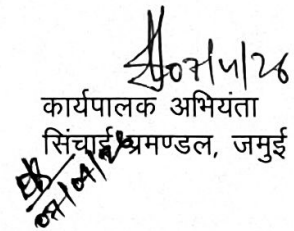 07/4/26
कार्यपालक अभियंता
सिंचाई प्रमण्डल, जमुई
07/04/26